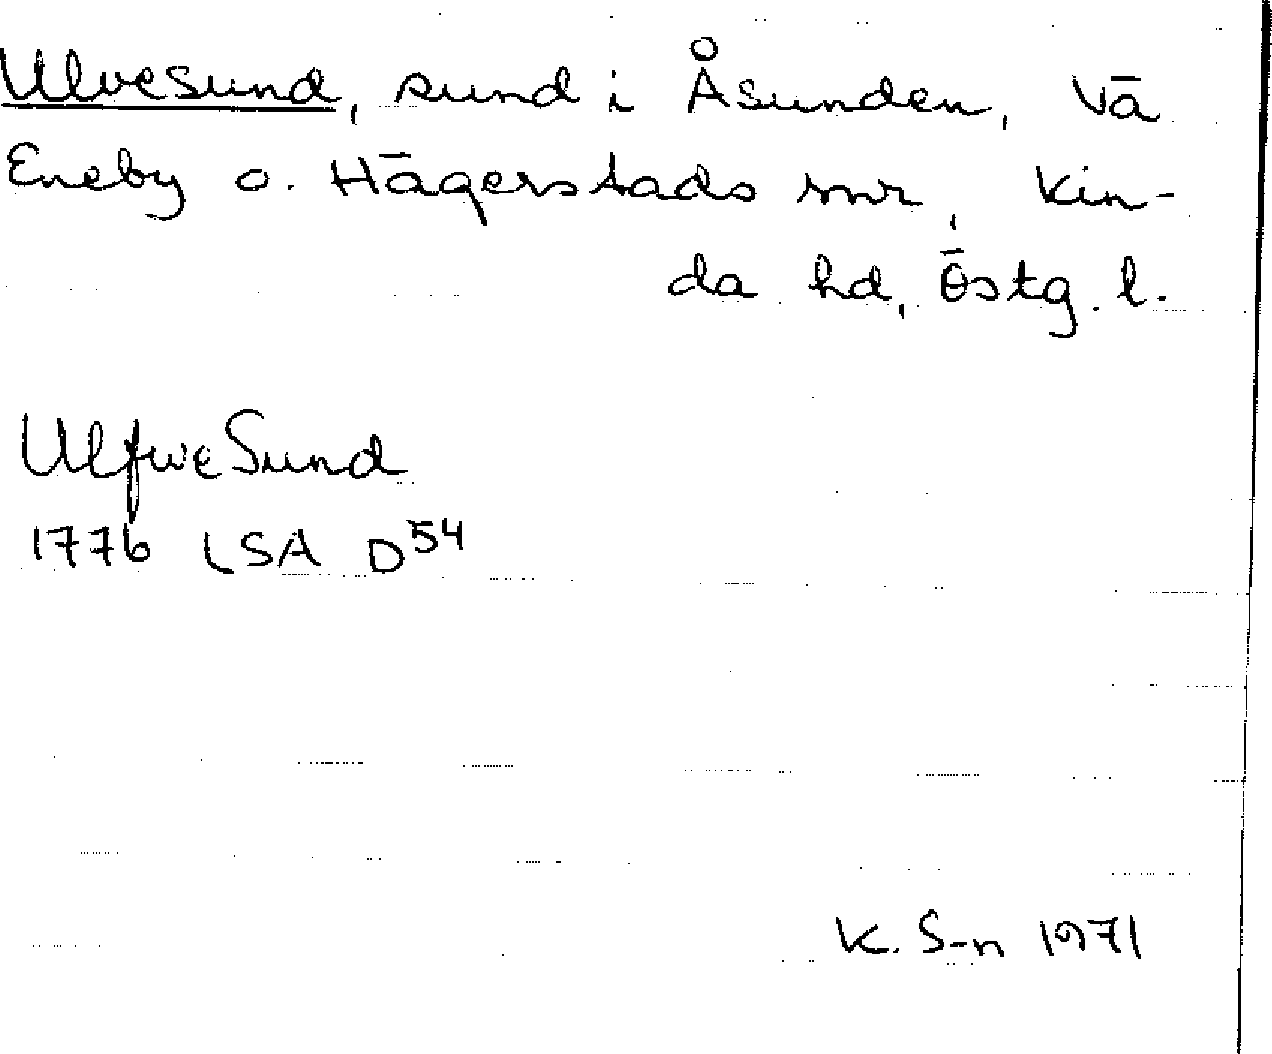 Ulvesund, sund i Åsunden, Vä
Eneby o. Hägerstads snr, Kin-
da hd, Östg. l.
UlfweSund
1776 LSA D54
K. S-n 1971